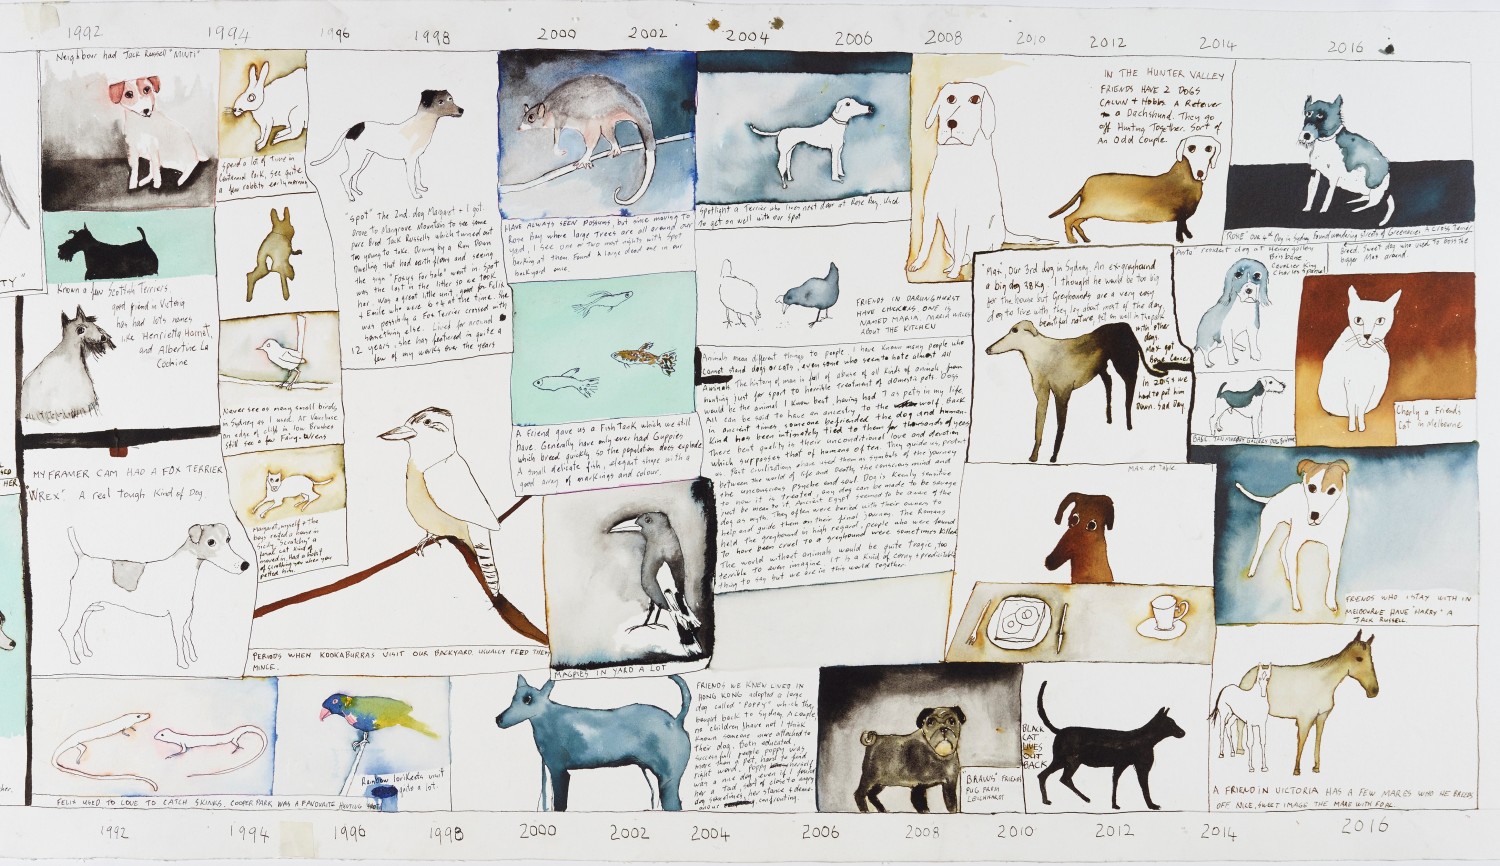 1992 1994 1996 1998 2000 2002 2004 2006 2008 2010 2012 2014 2016
Neighbour had Jack Russell "MINTI"
Spend a lot of time in
Centennial Park, see quite
a few rabbits early morning
"Spot" the 2nd dog Margaret + I got.
Drove to Mangrove Mountain to see some
pure Bred Jack Russells which turned out
too young to take. Driving by a Run Down
Dwelling that had earth floors and seeing
the sign "Foxys for Sale" went in Spot
was the last in the litter so we took
her. Was a great little unit, good for Felix
+ Emile who were 6 + 4 at the time. She
was possibly a Fox Terrier crossed with
something else. Lived for around
12 years, she has featured in quite a
few of my works over the years
HAVE ALWAYS SEEN POSSUMS, but since moving to
Rose Bay where large Trees are all around our
yard, I see one or two most nights with Spot
barking at them. Found a large dead one in our
backyard once.
Spotlight a Terrier who lives next door at Rose Bay. Used
to get on well with our Spot
IN THE HUNTER VALLEY
FRIENDS HAVE 2 DOGS
CALVIN + Hobbs. A Retriever
a Dachshund. They go
off Hunting Together. Sort of
An Odd Couple.
"ROSIE" OUR 4th Dog in Sydney, Found wandering streets of Greenacre a cross Terrier
Breed. Sweet dog who used to Boss the
bigger Max around.
Known a few Scottish Terriers,
good friend in Victoria
has had lots names
like Henrietta Hornet,
and Albertine La
Cochine
Never see as many small birds
in Sydney as I used. At Vaucluse
on edge of cliff in low Brushes
still see a few Fairy-Wrens
FRIENDS IN DARLINGHURST
HAVE CHICKENS ONE IS
NAMED MARIA. MARIA WALKS
ABOUT THE KITCHEN
"Max", Our 3rd dog in Sydney. An ex-greyhound
a big dog 38kg. I thought he would be too big
for the house but Greyhounds are a very easy
dog to live with they lay about most of the day.
beautiful nature, got on well in the park
with other
dogs.
Max got
Bone Cancer
In 2015 + we
had to put him
Down. Sad Day
resident dog at Heiser gallery
Brisbane
Cavalier King
Charles Spaniel
Charly a Friends
Cat in Melbourne
MAX AT TABLE
A Friend gave us a Fish Tank which we still
have. Generally have only ever had Guppies
which breed quickly so the population does explode
A small delicate fish, elegant shape with a
good array of markings and colour.
Animals mean different things to people, I have known many people who
cannot stand dogs or cats, even some who seem to hate almost all
Animals. The history of man is full of abuse of all kinds of animals, from
hunting just for sport to horrible treatment of domestic pets. Dogs
would be the animal I know best having had 7 as pets in my life.
All can be said to have an ancestry to the wolf. Back
in ancient times someone befriended the dog and human-
kind has been intimately tied to them for thousands of years
There best quality is their unconditional love and devotion
which supposes that of humans often. They guide us, protect
us. Past civilizations even used them as symbols of the journey
between the world of life and Death, the conscious mind and
the unconscious Psyche and soul. Dog is keenly sensitive
to how it is treated, any dog can be made to be savage
just be mean to it. Ancient Egypt seemed to be aware of the
dog as myth. They often were buried with their owners to
help and guide them on their final journey. The Romans
held the greyhound in high regard, people who were found
to have been cruel to a greyhound were sometimes killed
The world without animals would be quite tragic, too
terrible to even imagine. It is a kind of corny + predictable
thing to say but we are in this world together.
MY FRAMER CAM HAD A FOX TERRIER
"WREX" A real tough kind of Dog
Margaret, myself + the
boys rented a house in
Sicily. "Scratchy" a
feral cat kind of
moved in. Had a habit
of scratching you when you
petted him.
PERIODS WHEN KOOKABURRAS VISIT OUR BACKYARD. USUALLY FEED THEM
MINCE.
MAGPIES IN YARD A LOT
FRIENDS WHO I STAY WITH IN
MELBOURNE HAVE "HARRY" A
JACK RUSSELL.
FRIENDS WE KNEW LIVED IN
HONG KONG adopted a large
dog called "POPPY" which they
bought back to Sydney. A couple,
no children I have not I think
known someone more attached to
their dog. Both educated,
successful people poppy was
more than a pet, hard to find
right word, Poppy herself
was a nice dog even if I found
her a tad, sort of close to angry
dog sometimes, her stance + deme-
anour confronting.
"BRAWS" FRIENDS
PUG FROM
LEICHHARDT
BLACK
CAT
LIVES
OUT
BACK
Rainbow lorikeets visit
quite a lot.
FELIX USED TO LOVE TO CATCH SKINKS. COOPER PARK WAS A FAVOURITE HUNTING
A FRIEND IN VICTORIA HAS A FEW MARES WHO HE BREEDS
OFF NICE, SWEET IMAGE THE MARE WITH FOAL
1992 1994 1996 1998 2000 2002 2004 2006 2008 2010 2012 2014 2016